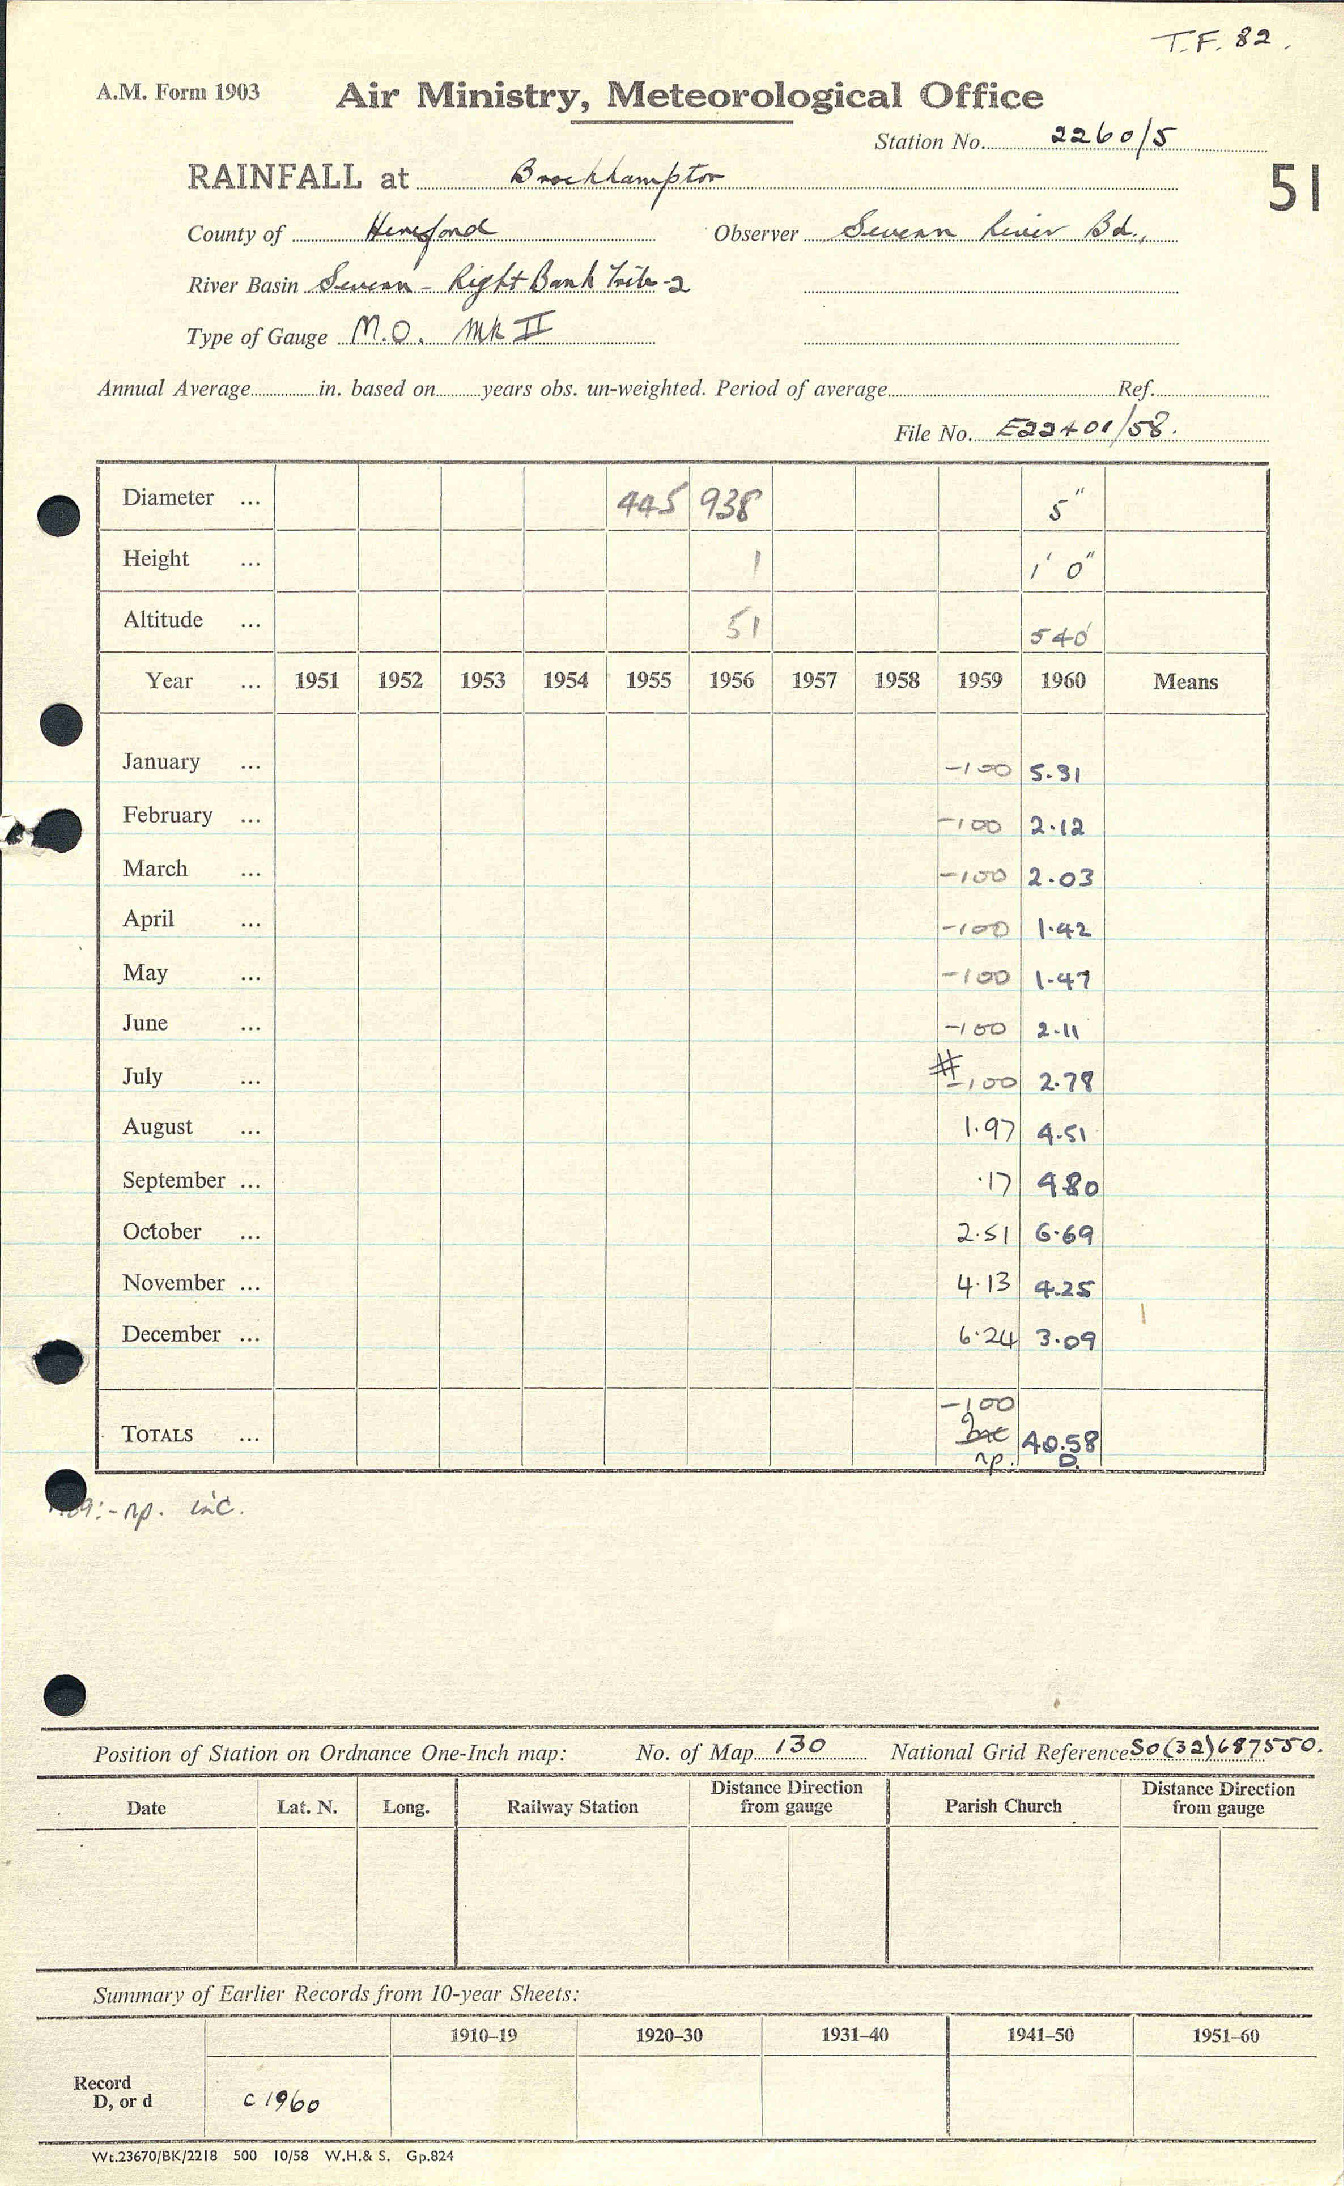 T.F. 82.
A.M. Form 1903
Air Ministry, Meteorological Office
Station No. 2260/5
51
RAINFALL at Brockhampton
County of Hereford Observer Severn River Bd.,
River Basin Severn - Right Bank Tribs-2
Type of Gauge M.O. Mk II
Annual Average in. based on years obs. un-weighted. Period of average Ref.
File No. E22401/58.
Diameter ... 445 938 5"
Height ... 1 1' 0"
Altitude ... 51 540'
Year ... 1951 1952 1953 1954 1955 1956 1957 1958 1959 1960 Means
January ... -100 5.31
February ... -100 2.12
March ... -100 2.03
April ... -100 1.42
May ... -100 1.47
June ... -100 2.11
July ... # -100 2.78
August ... 1.97 4.51
September ... .17 4.80
October ... 2.51 6.69
November ... 4.13 4.25
December ... 6.24 3.09
-100
TOTALS ... Inc 40.58
np. D.
:- np. inc.
Position of Station on Ordnance One-Inch map: No. of Map 130 National Grid Reference SO(32)687550.
Date Lat. N. Long. Railway Station Distance Direction from gauge Parish Church Distance Direction from gauge
Summary of Earlier Records from 10-year Sheets:
1910–19 1920–30 1931–40 1941–50 1951–60
Record
D, or d c 1960
Wt.23670/BK/2218 500 10/58 W.H.& S. Gp.824